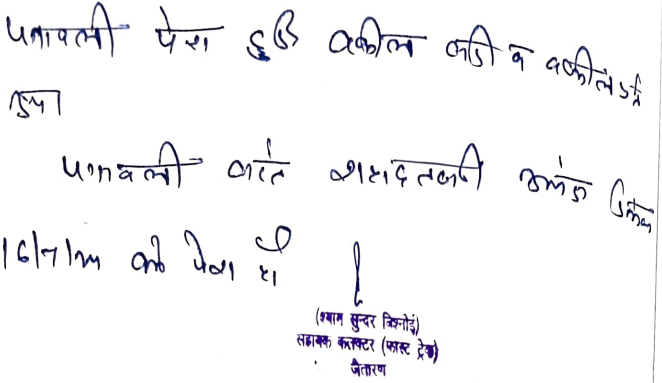 पत्रावली पेश हुई वकील वादी व वकील प्रति
उप।
पत्रावली वास्ते शहादत वादी
16/7/24 को पेश हो
(श्याम सुन्दर विश्नोई)
सहायक कलक्टर (फास्ट ट्रेक)
जैतारण